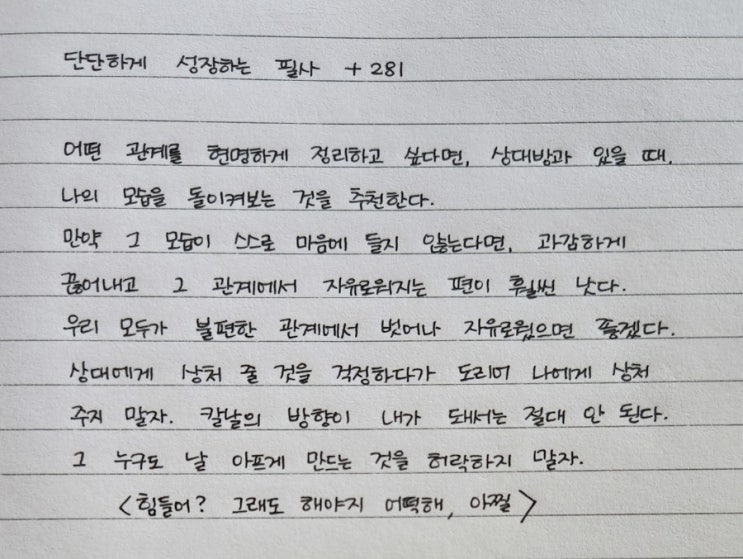 단단하게 성장하는 필사 +281
어떤 관계를 현명하게 정리하고 싶다면, 상대방과 있을 때,
나의 모습을 돌이켜보는 것을 추천한다.
만약 그 모습이 스스로 마음에 들지 않는다면, 과감하게
끊어내고 그 관계에서 자유로워지는 편이 훨씬 낫다.
우리 모두가 불편한 관계에서 벗어나 자유로웠으면 좋겠다.
상대에게 상처 줄 것을 걱정하다가 도리어 나에게 상처
주지 말자. 칼날의 방향이 내가 돼서는 절대 안 된다.
그 누구도 날 아프게 만드는 것을 허락하지 말자.
<힘들어? 그래도 해야지 어떡해, 아쩔>